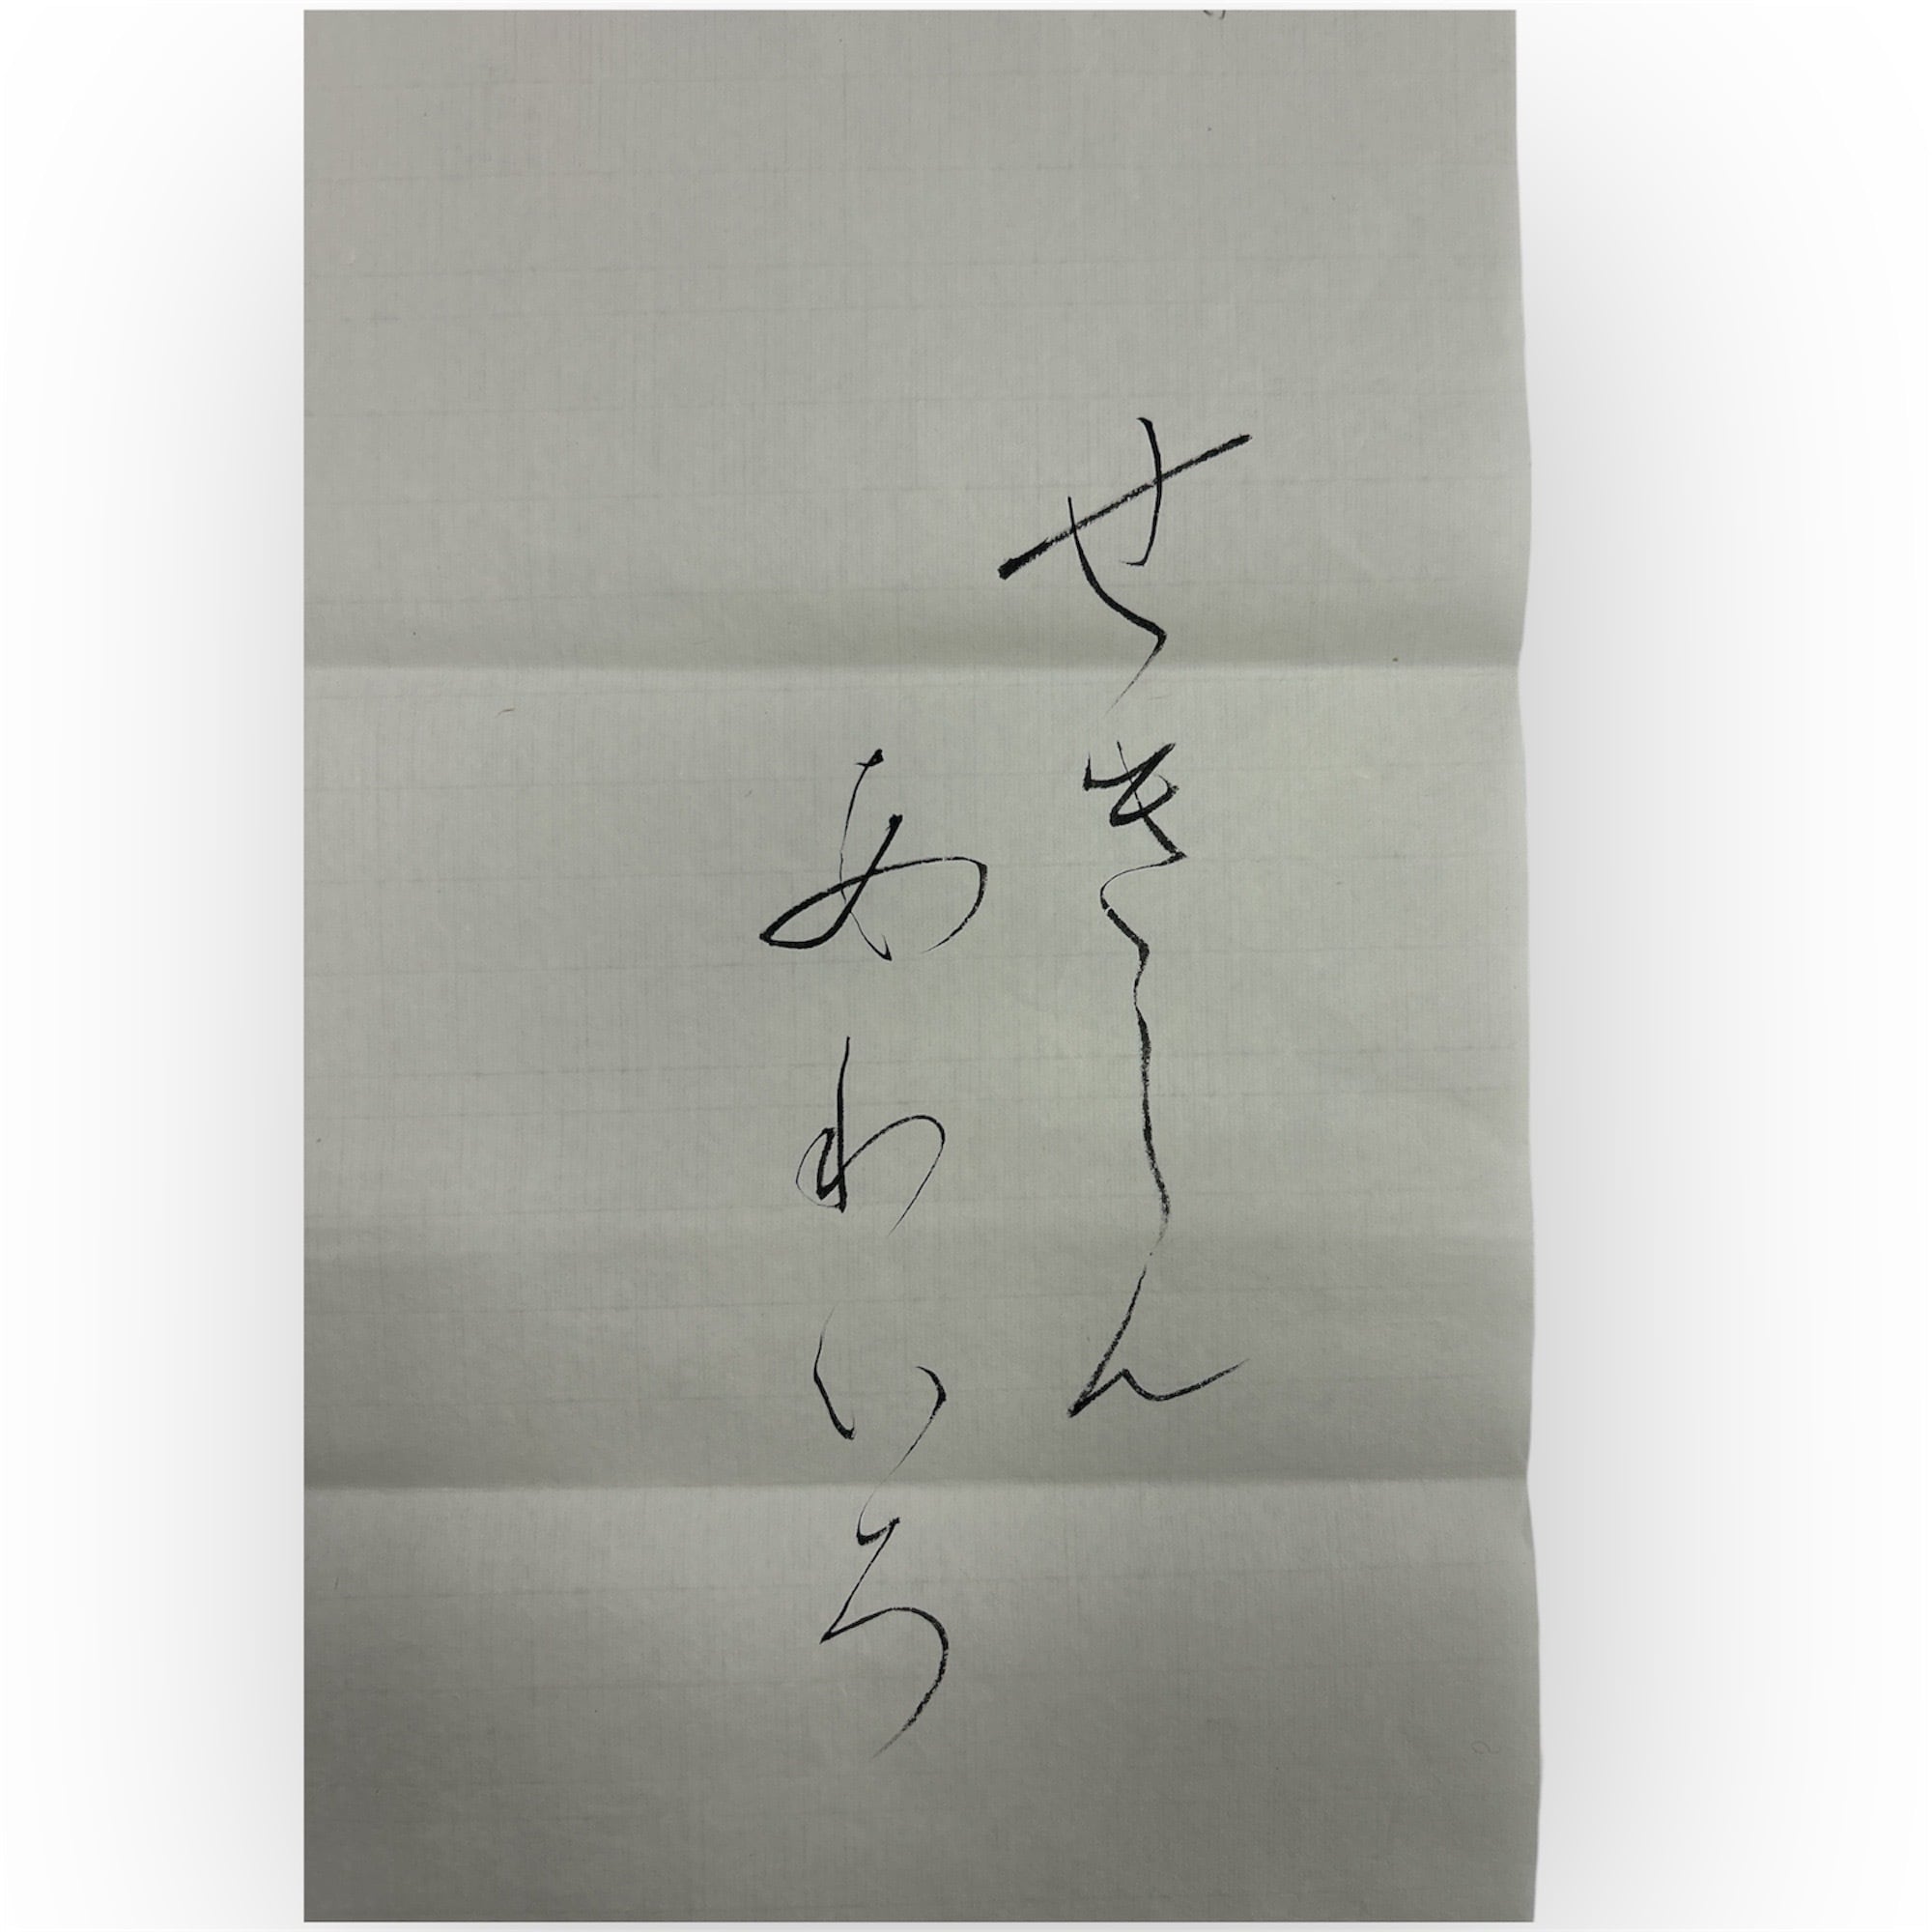 せきしん
あわいろ